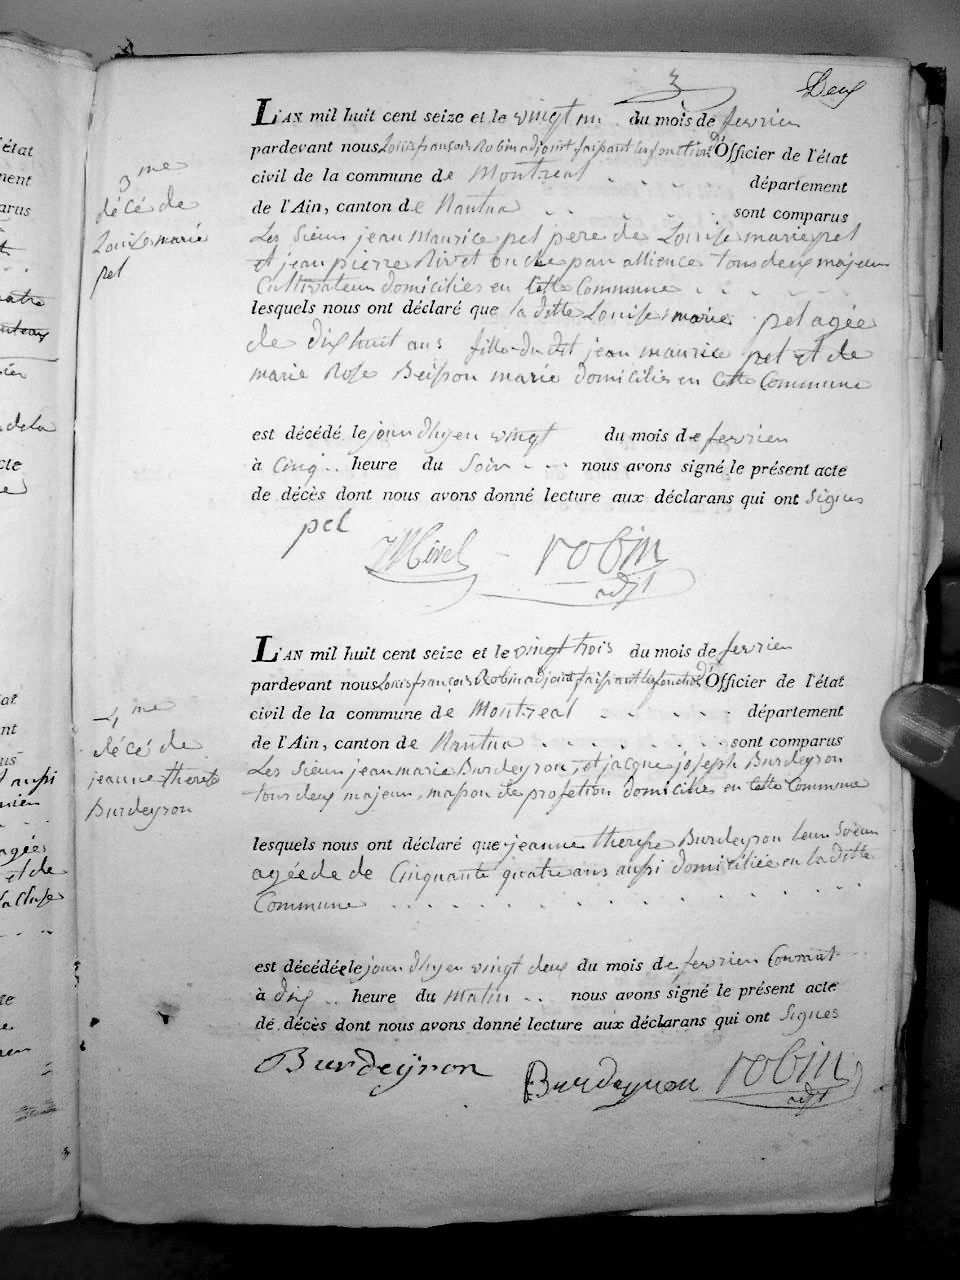 3
Deux
L'AN mil huit cent seize et le vingt un du mois de fevrier
pardevant nous Louis françois Robin adjoint faisant les fonctions D'Officier de l'état
civil de la commune de Montreal département
de l'Ain, canton de Nantua sont comparus
Les Sieurs jean Maurice pel pere de Louise marie pel
et jean pierre Rivet oncle par allience tous deux majeur
Cultivateur domiciliés en Cette Commune
lesquels nous ont déclaré que la ditte Louise marie pel agée
de dix huit ans fille dudit jean maurice pel et de
marie Rose Beisson marié domiciliés en Cette Commune
est décédé le jour dhyer vingt du mois de fevrier
à Cinq heure du Soir nous avons signé le présent acte
de décès dont nous avons donné lecture aux déclarans qui ont signés
pel
robin
adjt
3me
décé de
Louise marie
pel
L'AN mil huit cent seize et le vingt trois du mois de fevrier
pardevant nous Louis françois Robin adjoint faisant les fonctions D'Officier de l'état
civil de la commune de Montreal département
de l'Ain, canton de Nantua sont comparus
Les Sieurs jean marie Burdeyron, et jacque joseph Burdeyron
tous deux majeur, masson de profetion domiciliés en Cette Commune
lesquels nous ont déclaré que jeanne therese Burdeyron leur Soeur
agéede de Cinquante quatre ans aussi domiciliée en la ditte
Commune
est décédée le jour dhyer vingt deux du mois de fevrier Courant
à dix heure du Matin nous avons signé le présent acte
de décès dont nous avons donné lecture aux déclarans qui ont Signés
Burdeyron
Burdeyron robin
adjt
4me
décé de
jeanne therese
Burdeyron